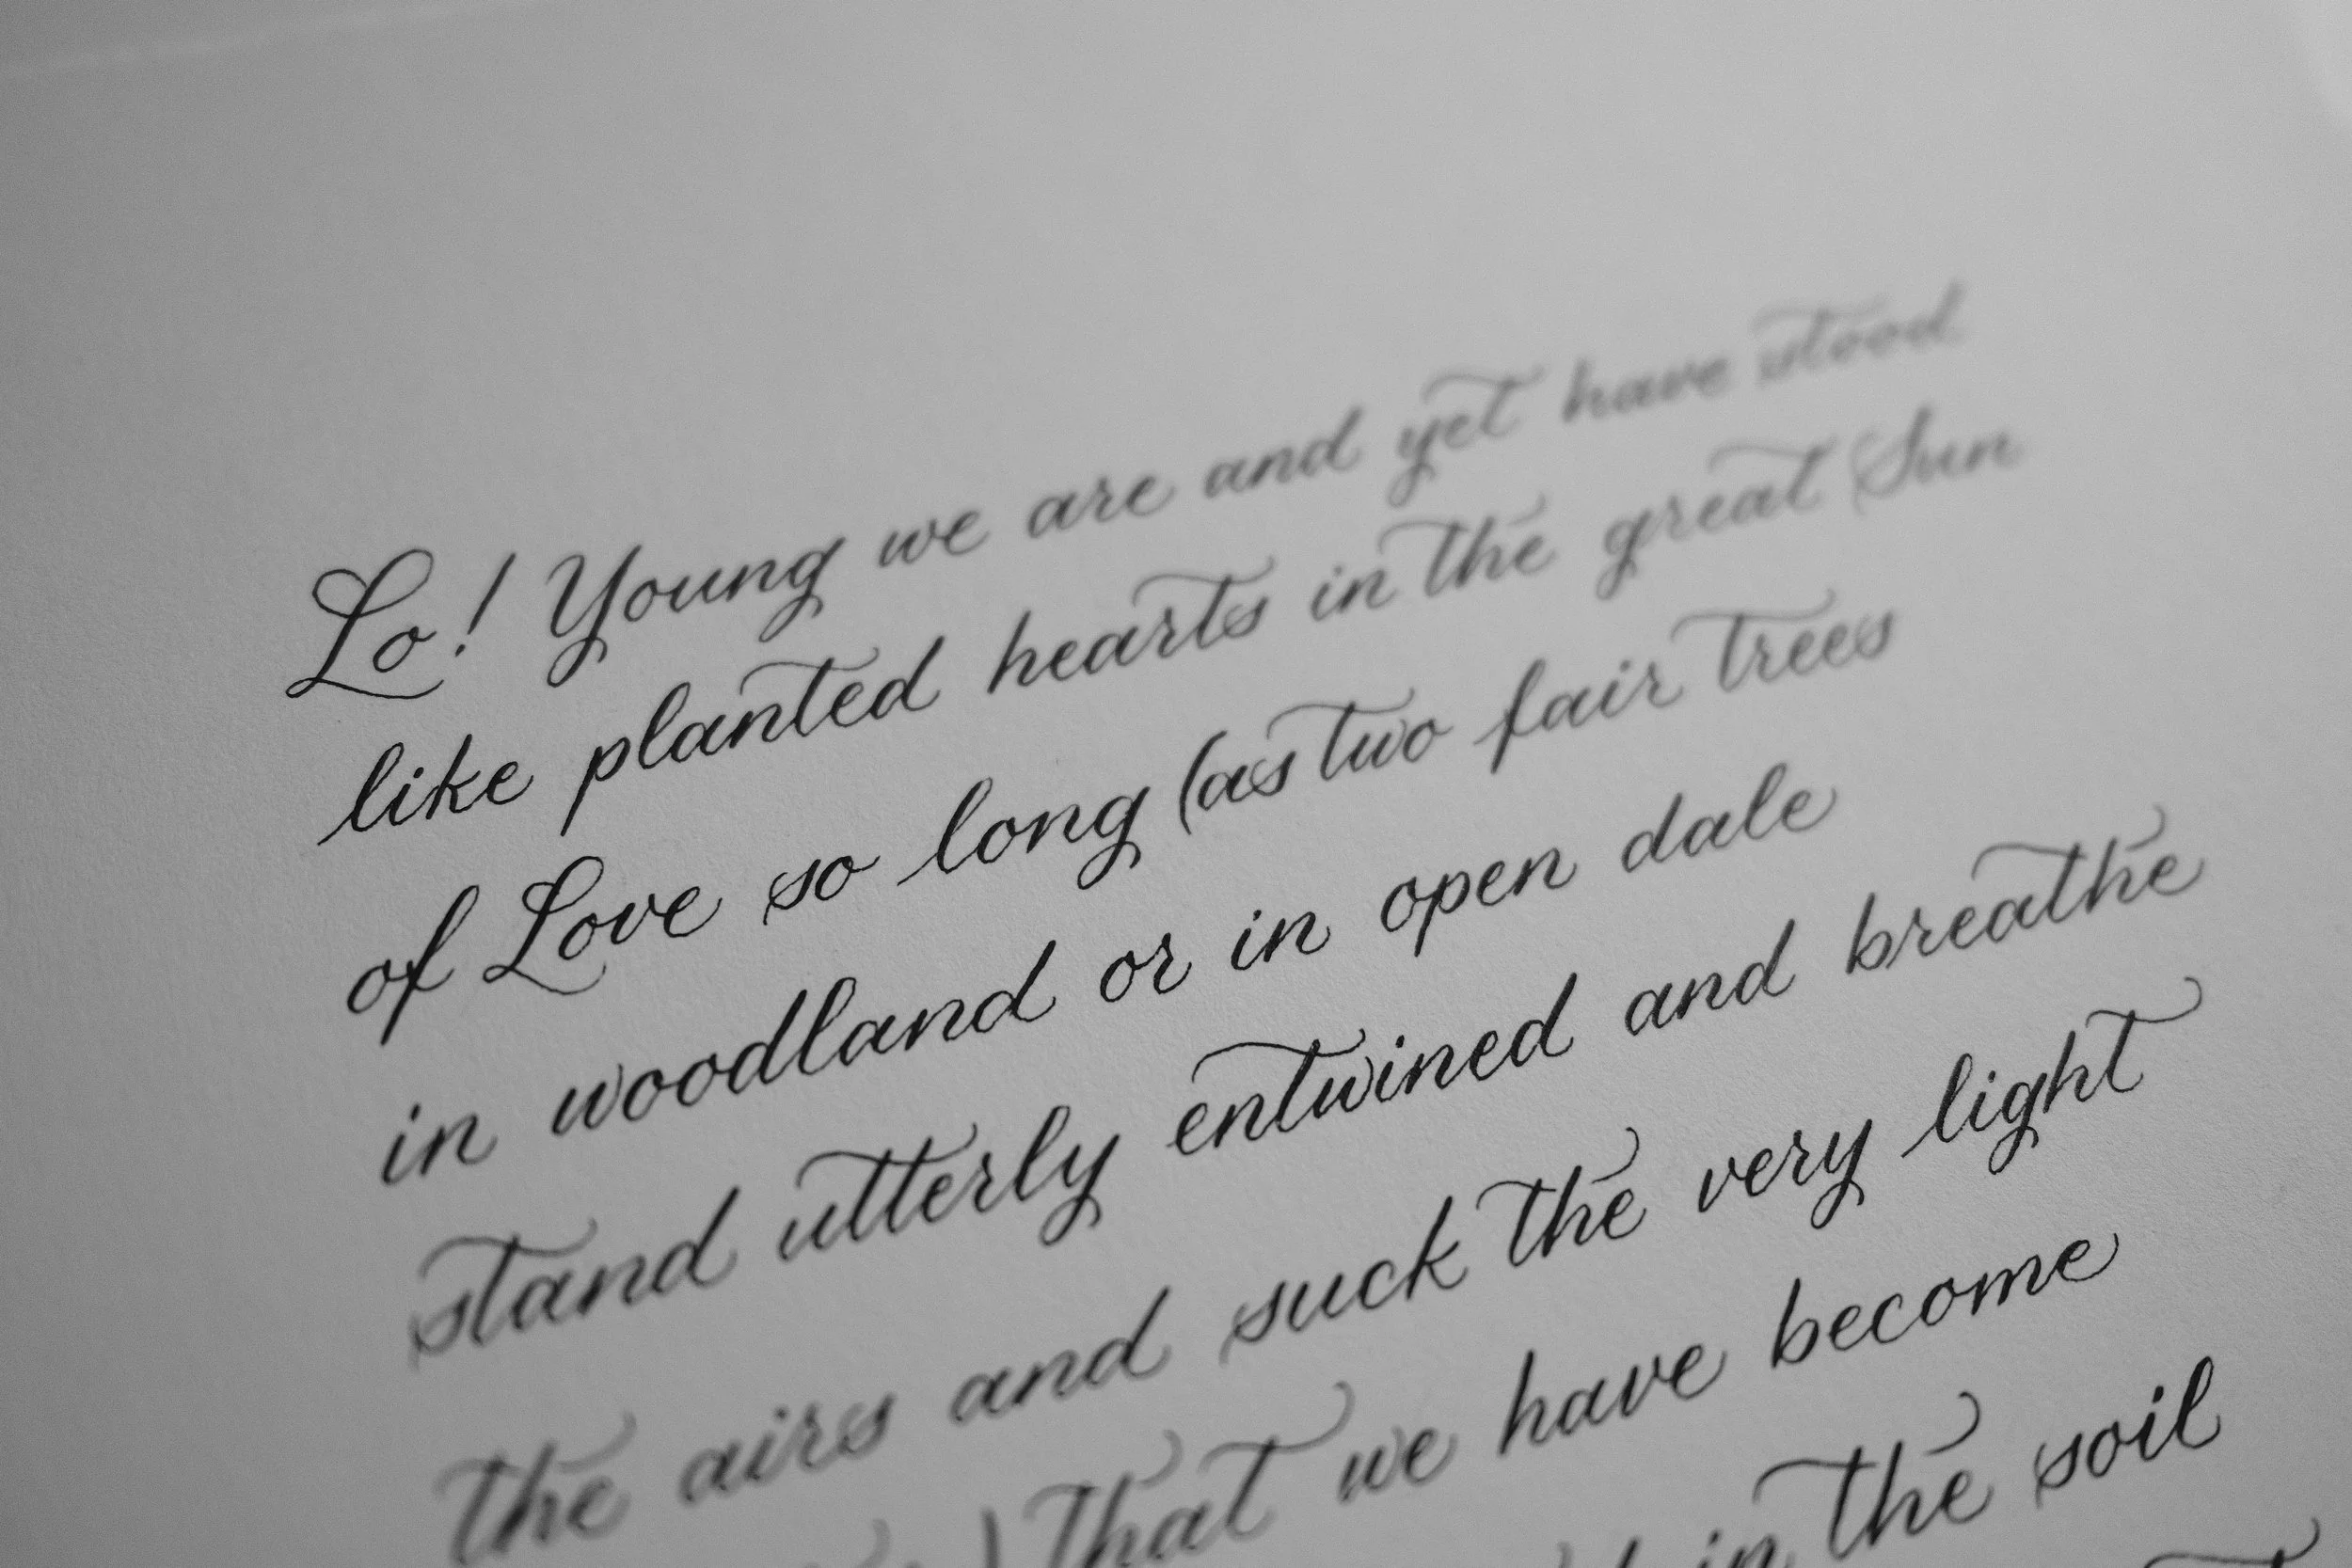 Lo! Young we are and yet have stood
like planted hearts in the great Sun
of Love so long (as two fair trees
in woodland or in open dale
stand utterly entwined and breathe
the airs and suck the very light
) that we have become
in the soil